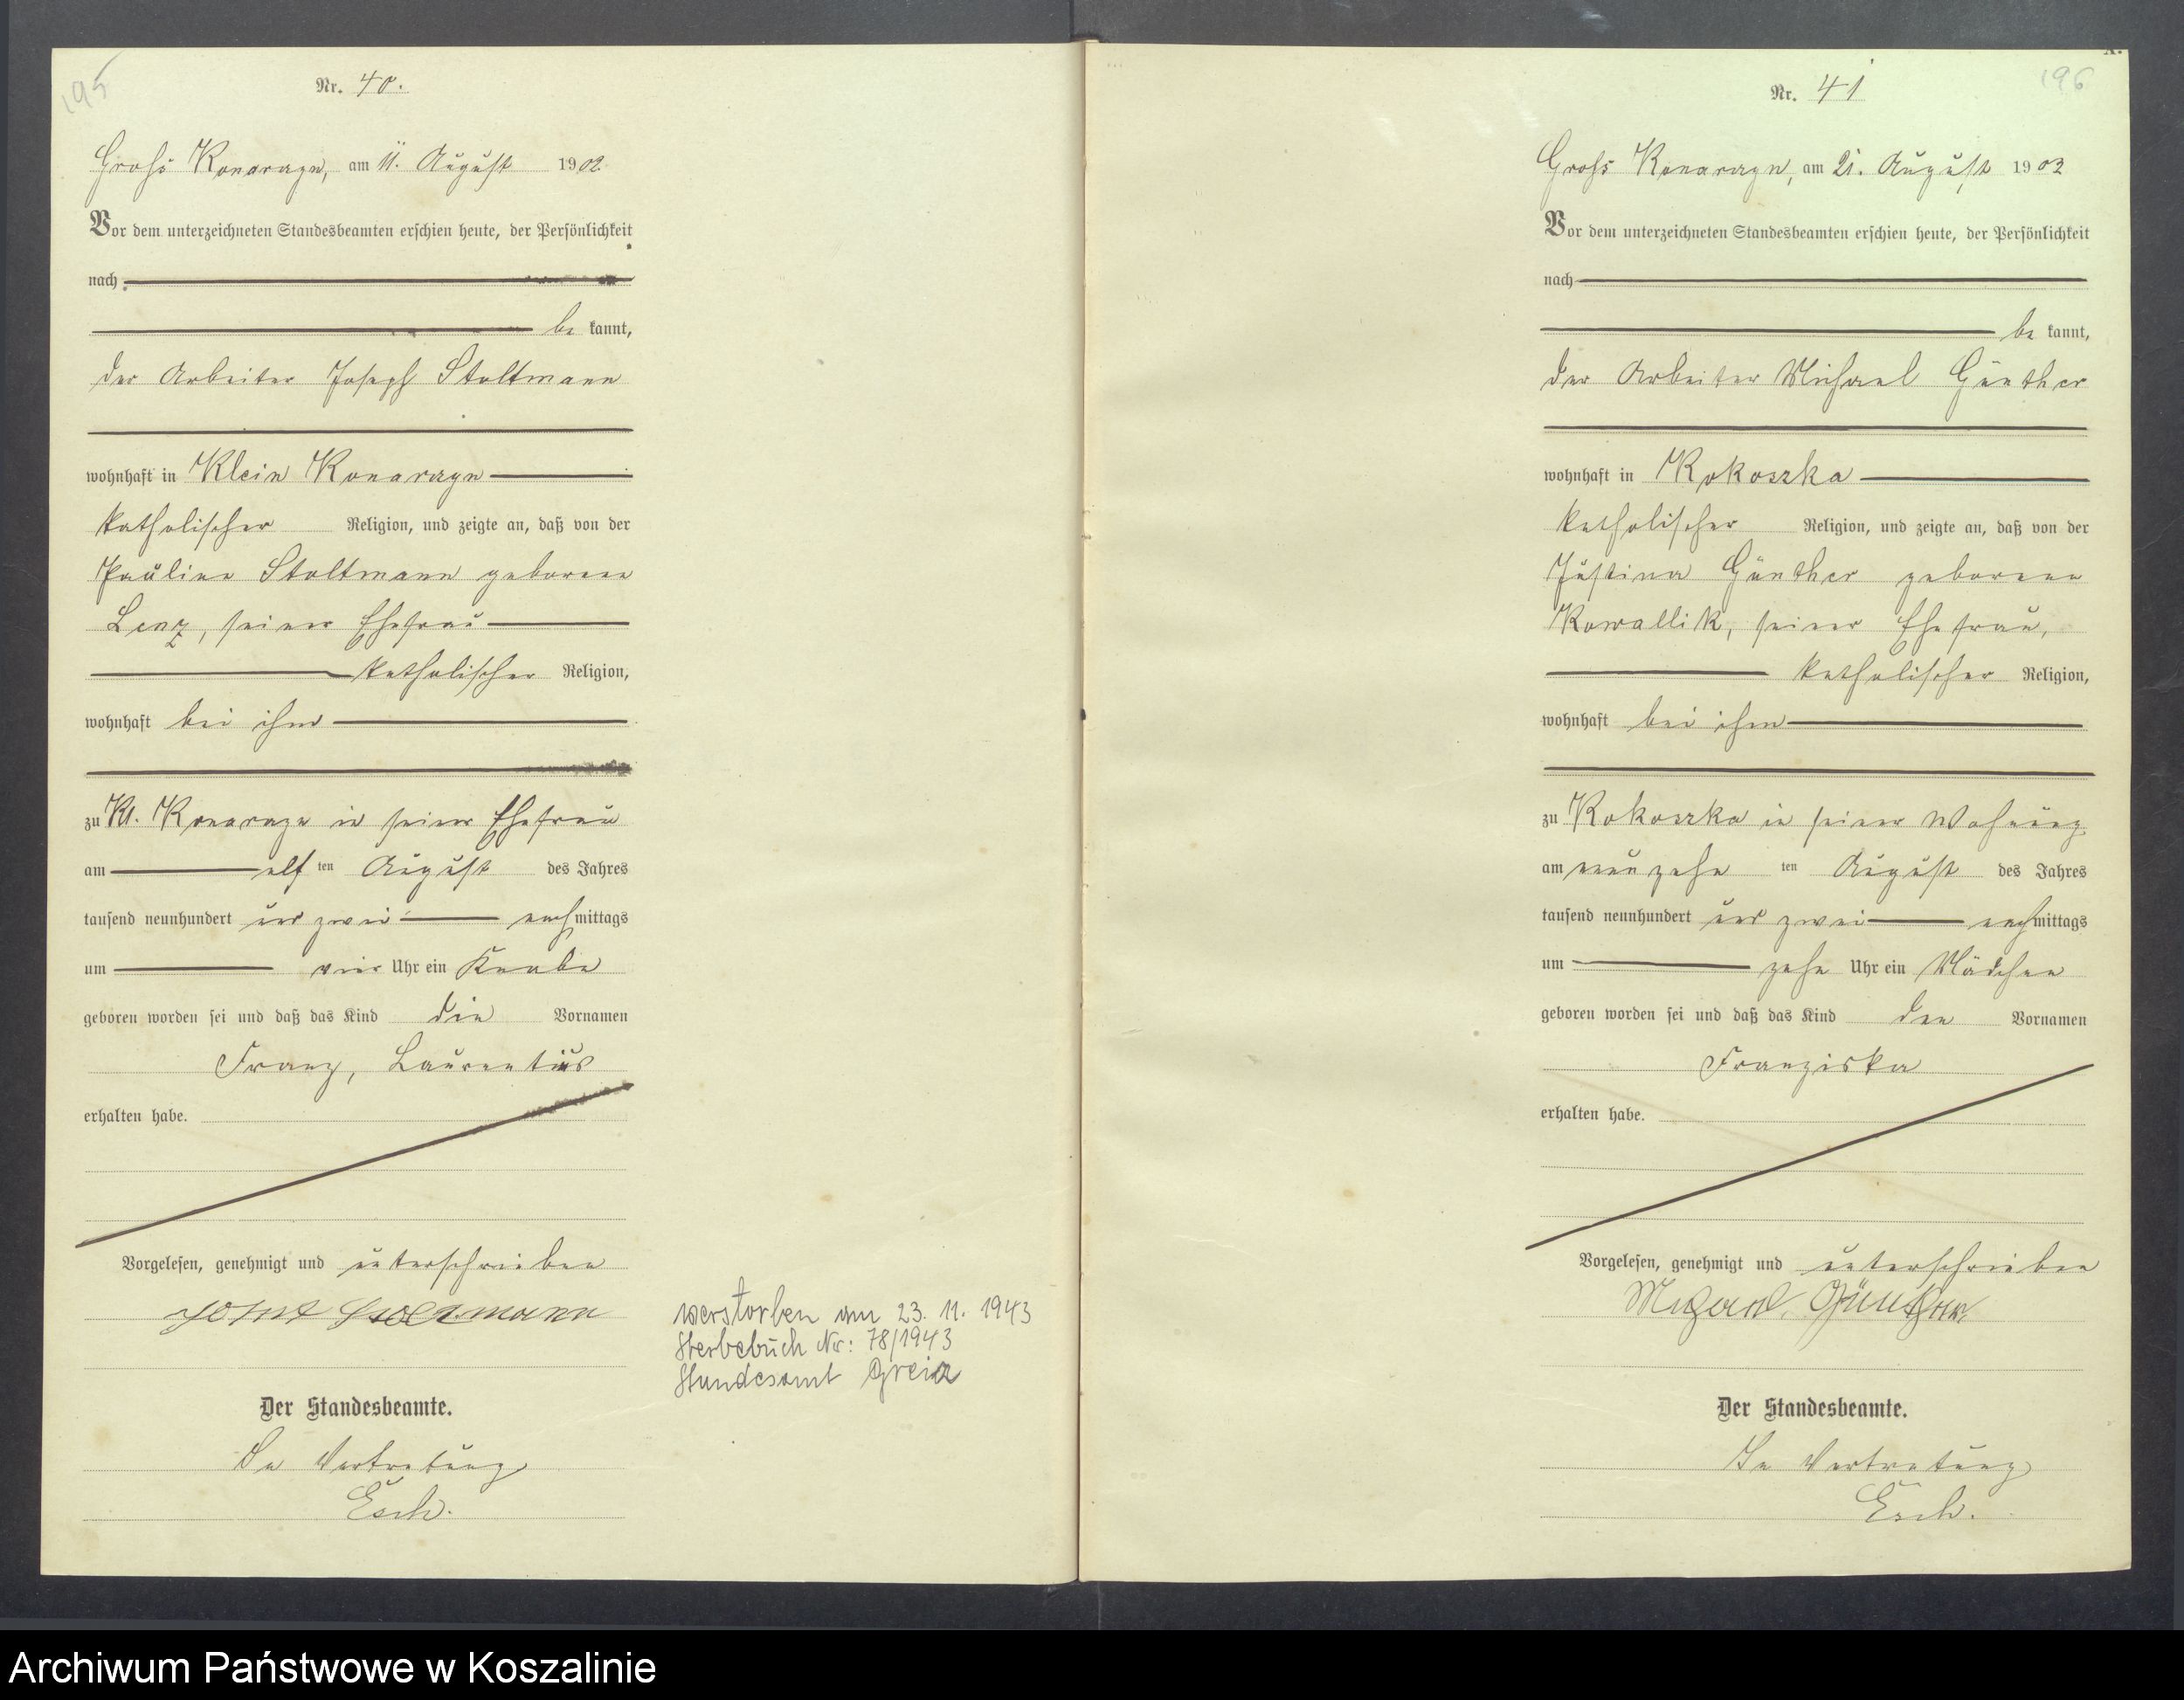 195
Nr. 40.
Gross Konarzyn, am 11. August 1902
Vor dem unterzeichneten Standesbeamten erschien heute, der Persönlichkeit
nach
be kannt,
der Arbeiter Joseph Stoltmann
wohnhaft in Klein Konarzyn
katholischer Religion, und zeigte an, daß von der
Pauline Stoltmann geborene
Lenz, seiner Ehefrau
katholischer Religion,
wohnhaft bei ihm
zu Kl. Konarzyn in seiner Ehefrau
am elf ten August des Jahres
tausend neunhundert und zwei nachmittags
um vier Uhr ein Knabe
geboren worden sei und daß das Kind die Vornamen
Franz, Laurentius
erhalten habe.
Vorgelesen, genehmigt und unterschrieben
Stoltmann
verstorben am 23. 11. 1943
Sterbebuch Nr: 78/1943
Standesamt
Der Standesbeamte.
In Vertretung
Esch.
196
Nr. 41
Gross Konarzyn, am 21. August 1902
Vor dem unterzeichneten Standesbeamten erschien heute, der Persönlichkeit
nach
be kannt,
der Arbeiter Michael Günther
wohnhaft in Kokoszka
katholischer Religion, und zeigte an, daß von der
Justina Günther geborene
Kowallik, seiner Ehefrau,
katholischer Religion,
wohnhaft bei ihm
zu Kokoszka in seiner Wohnung
am neunzehn ten August des Jahres
tausend neunhundert und zwei nachmittags
um zehn Uhr ein Mädchen
geboren worden sei und daß das Kind den Vornamen
Franziska
erhalten habe.
Vorgelesen, genehmigt und unterschrieben
Günther
Der Standesbeamte.
In Vertretung
Esch.
Archiwum Państwowe w Koszalinie